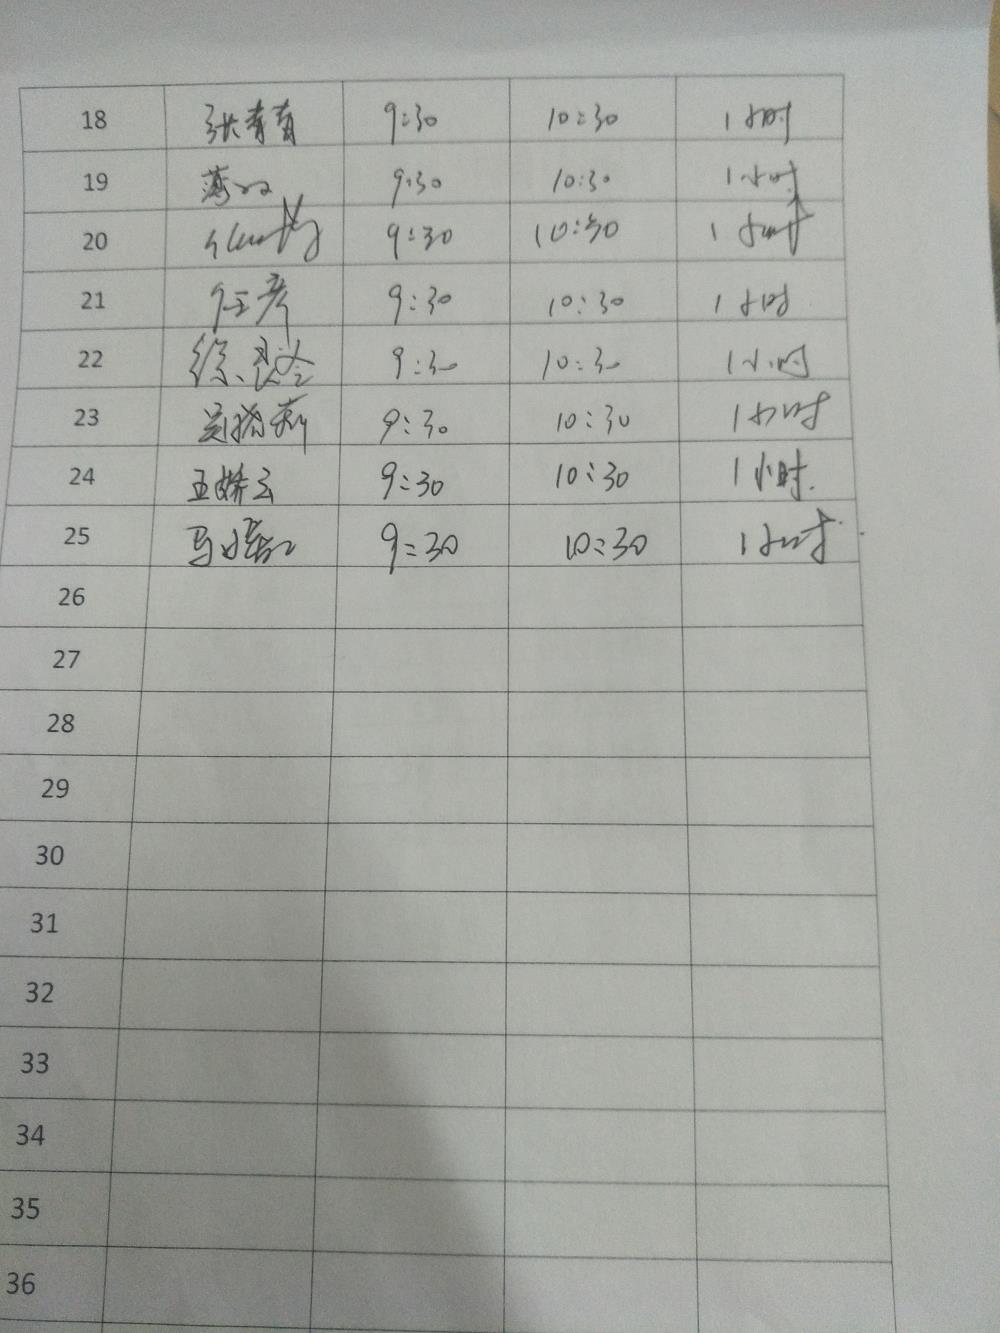 18 张青青 9:30 10:30 1小时
19 9:30 10:30 1小时
20 9:30 10:30 1小时
21 任彦 9:30 10:30 1小时
22 徐 9:30 10:30 1小时
23 吴晓莉 9:30 10:30 1小时
24 王娇云 9:30 10:30 1小时.
25 马 9:30 10:30 1小时
26
27
28
29
30
31
32
33
34
35
36